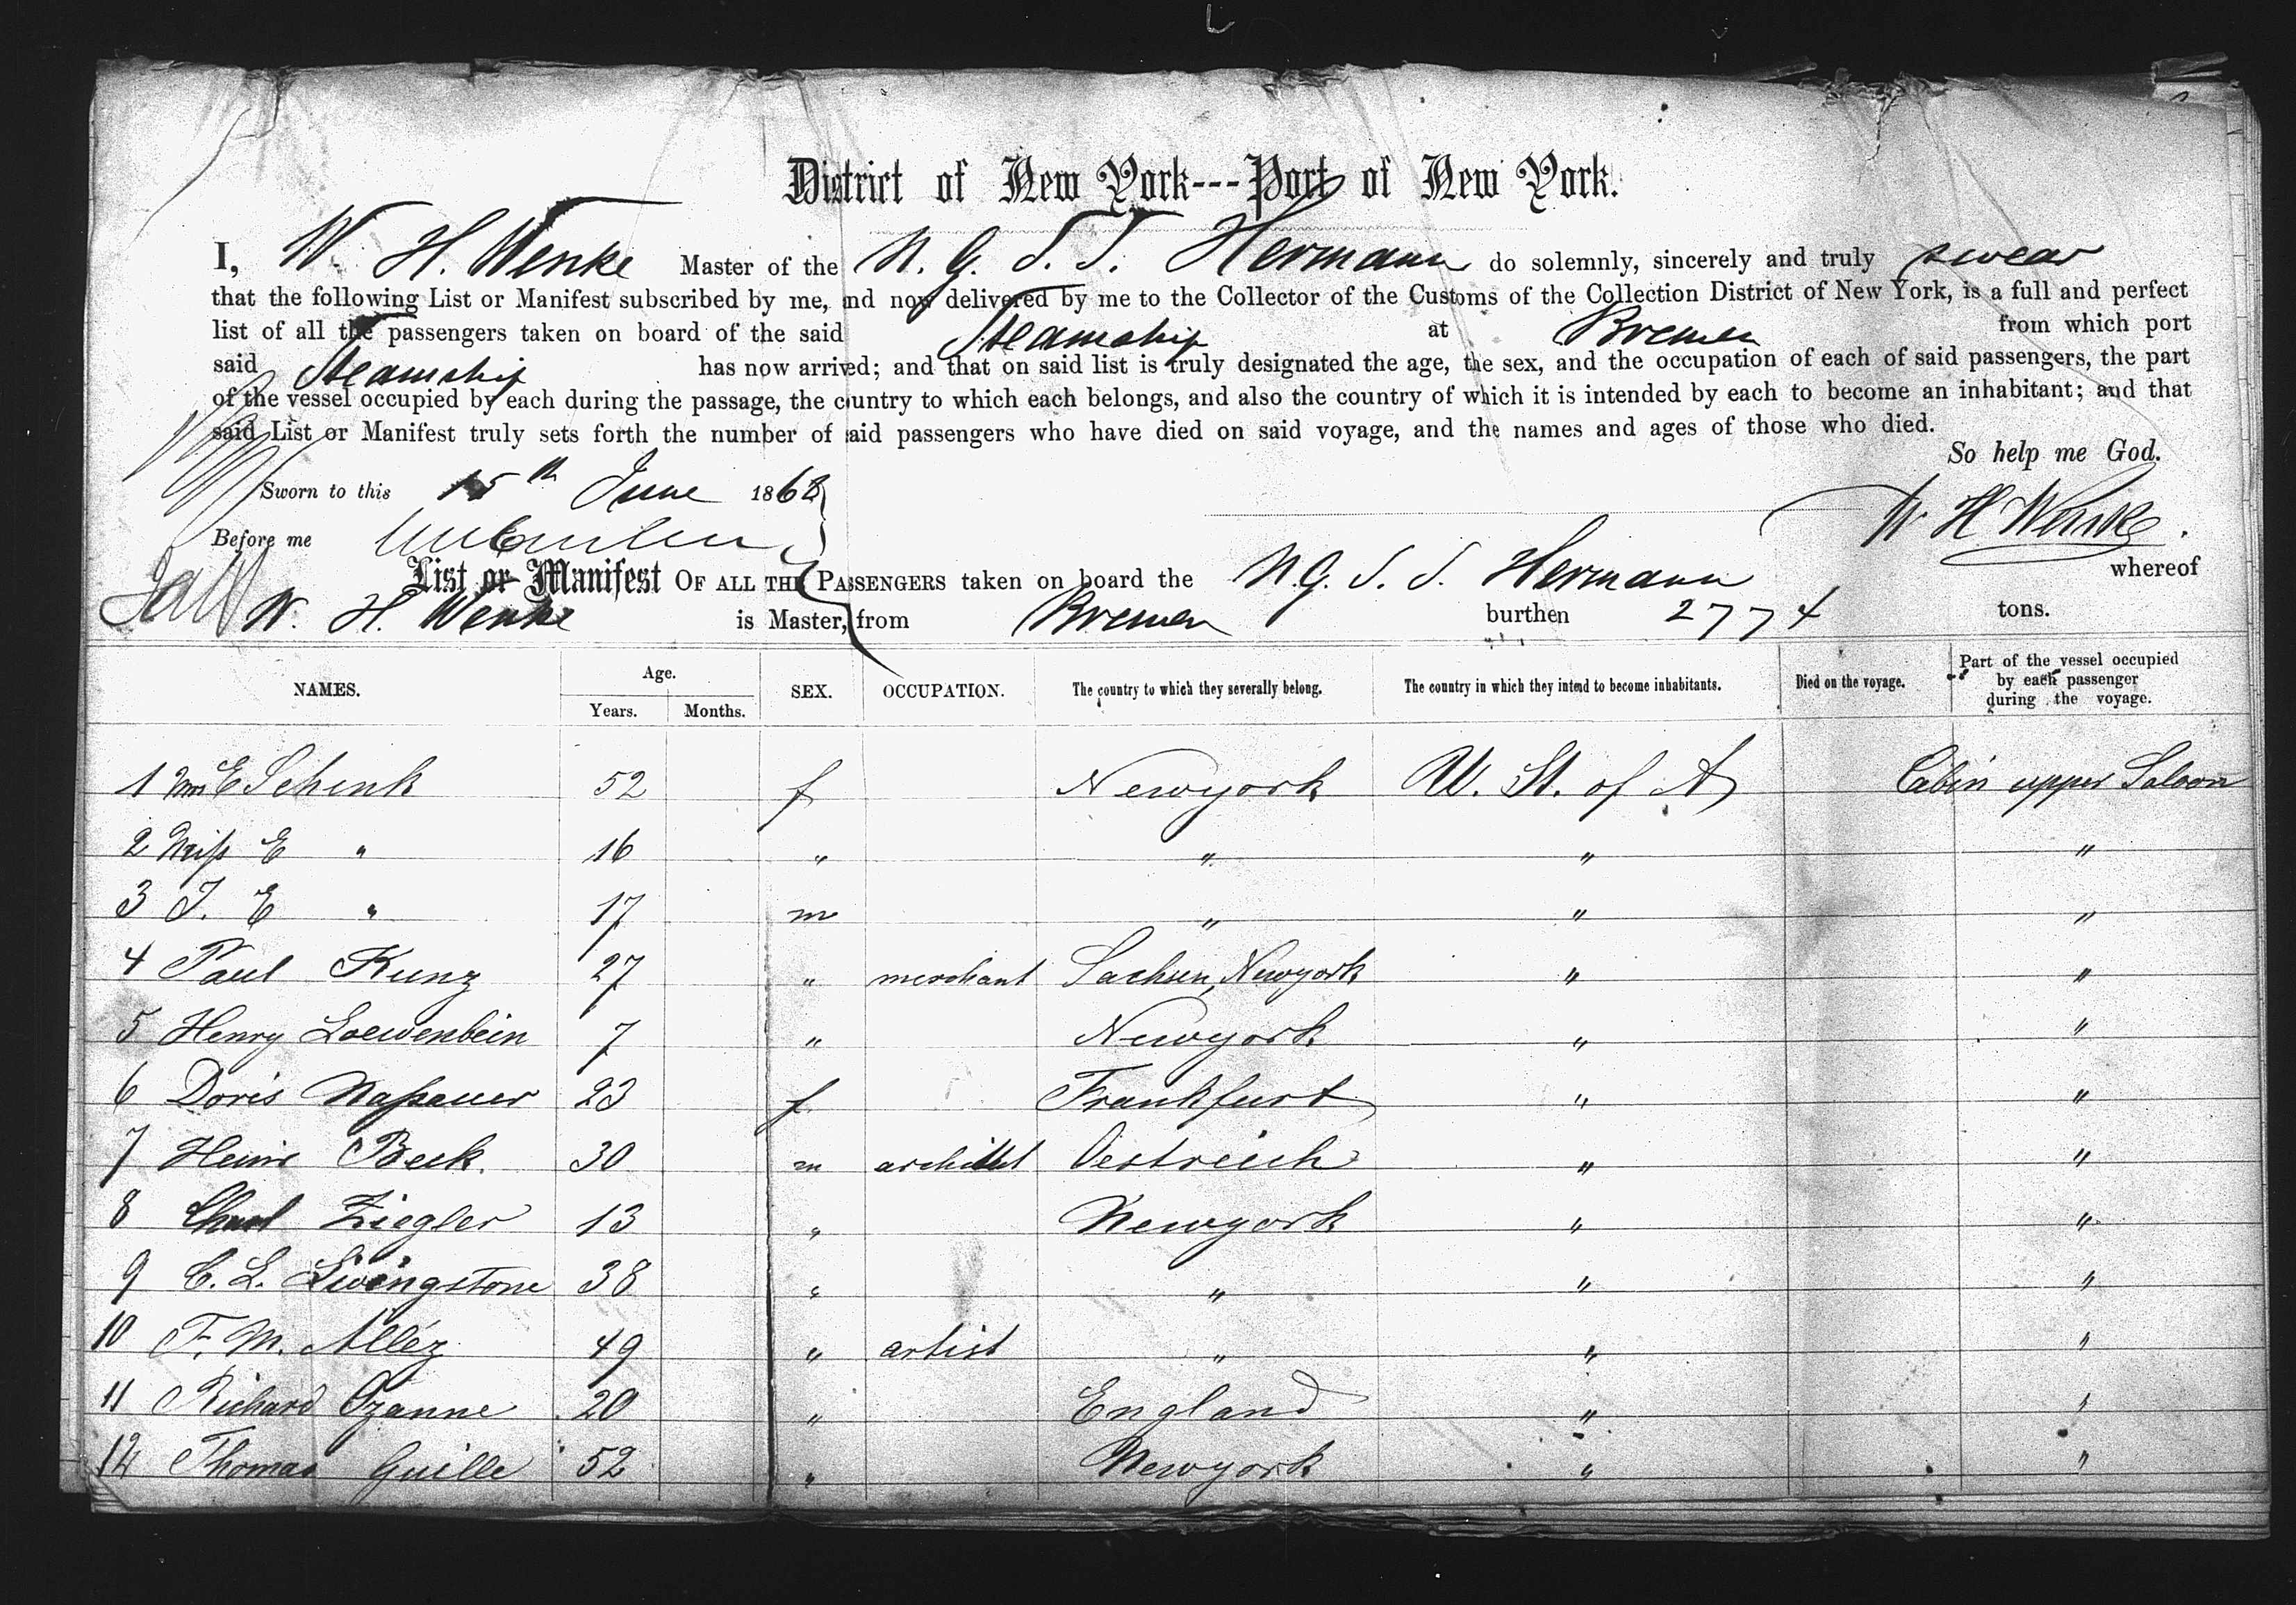 District of New York---Port of New York.
I, W. H. Wenke Master of the N. G. S. S. Hermann do solemnly, sincerely and truly swear
that the following List or Manifest subscribed by me, and now delivered by me to the Collector of the Customs of the Collection District of New York, is a full and perfect
list of all the passengers taken on board of the said Steamship at Bremen from which port
said Steamship has now arrived; and that on said list is truly designated the age, the sex, and the occupation of each of said passengers, the part
of the vessel occupied by each during the passage, the country to which each belongs, and also the country of which it is intended by each to become an inhabitant; and that
said List or Manifest truly sets forth the number of said passengers who have died on said voyage, and the names and ages of those who died.
So help me God.
Sworn to this 15th June 1868
W H Wenke.
Before me
List or Manifest OF ALL THE PASSENGERS taken on board the N. G. S. S. Hermann whereof
W. H. Wenke is Master, from Bremen burthen 2774 tons.
NAMES. Age. Years. Months. SEX. OCCUPATION. The country to which they severally belong. The country in which they intend to become inhabitants. Died on the voyage. Part of the vessel occupied by each passenger during the voyage.
1 Mrs E Schenk 52 f Newyork U. St. of A Cabin upper Saloon
2 Miss E " 16 " " " "
3 J. E " 17 m " " "
4 Paul Kunz 27 " merchant Sachsen, Newyork " "
5 Henry Loewenbein 7 " Newyork " "
6 Doris Nassauer 23 f Frankfurt " "
7 Heinr Beek. 30 m architect Oestreich " "
8 Charl Ziegler 13 " Newyork " "
9 C. L. Livingstone 38 " " " "
10 F. M. Alléz 49 " artist " " "
11 Richard Ozanne 20 " England " "
12 Thomas Guille 52 " Newyork " "